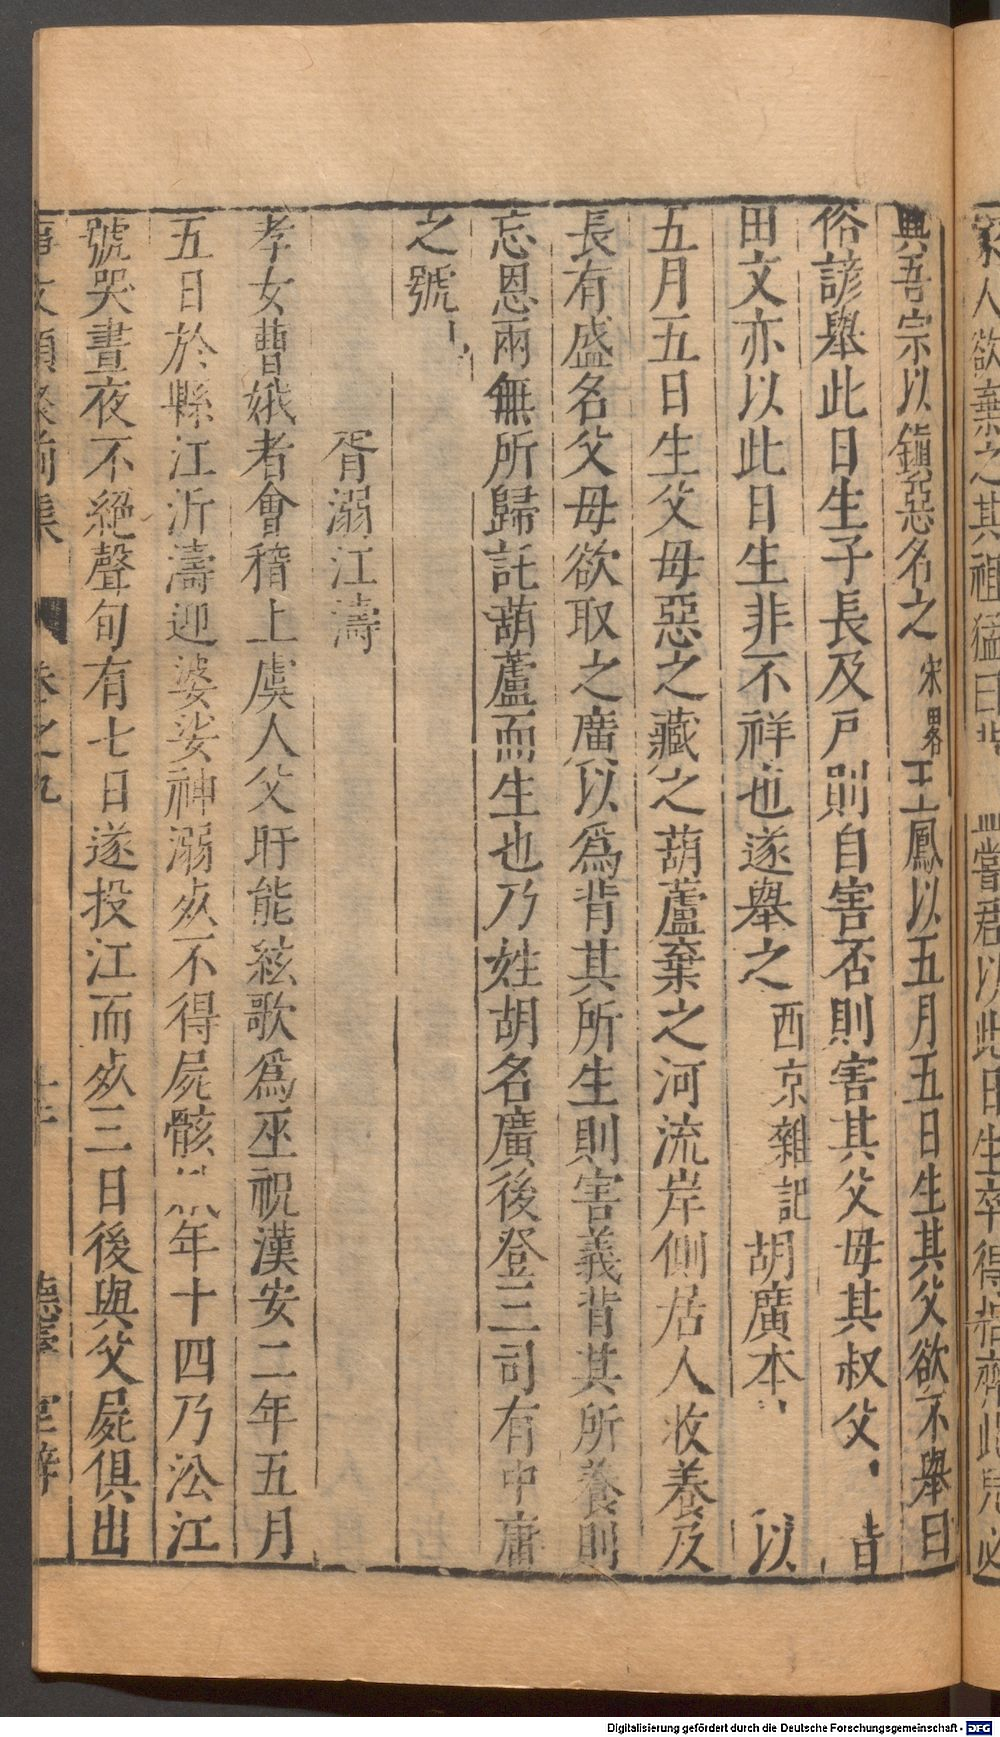 家人欲棄之其祖猛曰
嘗君以此日生卒得相齊此兒必
興吾宗以鎮惡名之宋畧王鳳以五月五日生其父欲不舉曰
俗諺舉此日生子長及戸則自害否則害其父母其叔父
田文亦以此日生非不祥也遂舉之西京雜記胡廣本 以
五月五日生父母惡之藏之葫蘆棄之河流岸側居人收養及
長有盛名父母欲取之廣以爲背其所生則害義背其所養則
忘恩兩無所歸託葫蘆而生也乃姓胡名廣後登三司有中庸
之號
胥溺江濤
孝女曹娥者會稽上虞人父盱能絃歌爲巫祝漢安二年五月
五日於縣江泝濤迎婆娑神溺𣦸不得屍骸 年十四乃㳂江
號哭晝夜不絕聲旬有七日遂投江而𣦸三日後與父屍俱出
事文類聚前集 卷之九
德壽堂梓
Digitalisierung gefördert durch die Deutsche Forschungsgemeinschaft - DFG